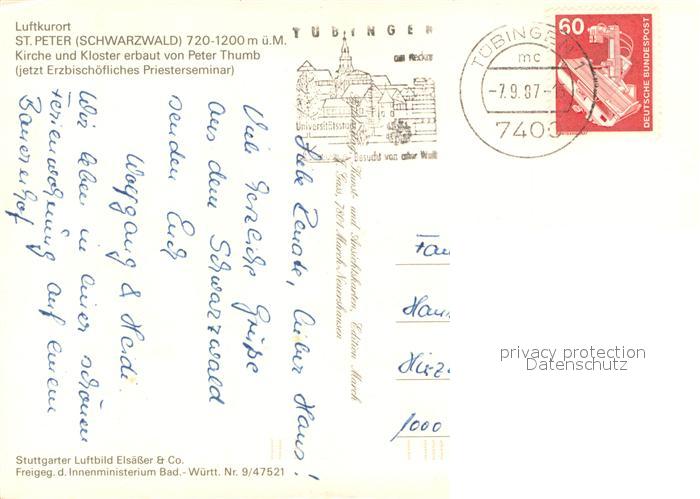 Luftkurort
ST. PETER (SCHWARZWALD) 720-1200 m ü.M.
Kirche und Kloster erbaut von Peter Thumb
(jetzt Erzbischöfliches Priesterseminar)
TÜBINGEN
am Neckar
Universitätsstadt
Besucht von aller Welt
TÜBINGEN 1
mc
-7.9.87-
7400
60
DEUTSCHE BUNDESPOST
Liebe Renate, lieber Hans!
Viele herzliche Grüße
aus dem Schwarzwald
senden Euch
Wolfgang & Heidi.
Wir leben in einer schönen
Ferienwohnung auf einem
Bauernhof
Kunst- und Ansichtskarten, Edition March
7801 March-Neuershausen
Fam
Hans
1000
privacy protection
Datenschutz
Stuttgarter Luftbild Elsäßer & Co.
Freigeg. d. Innenministerium Bad.- Württ. Nr. 9/47521